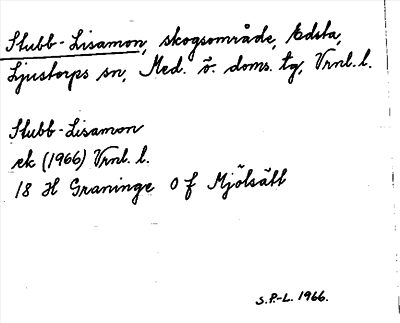 Stubb-Lisamon, skogsområde, Edsta,
Ljustorps sn, Med. ö. doms. tg, Vrnl. l.
Stubb-Lisamon
ek (1966) Vrnl. l.
18 H Graninge 0 f Mjölsätt
S.P.-L. 1966.